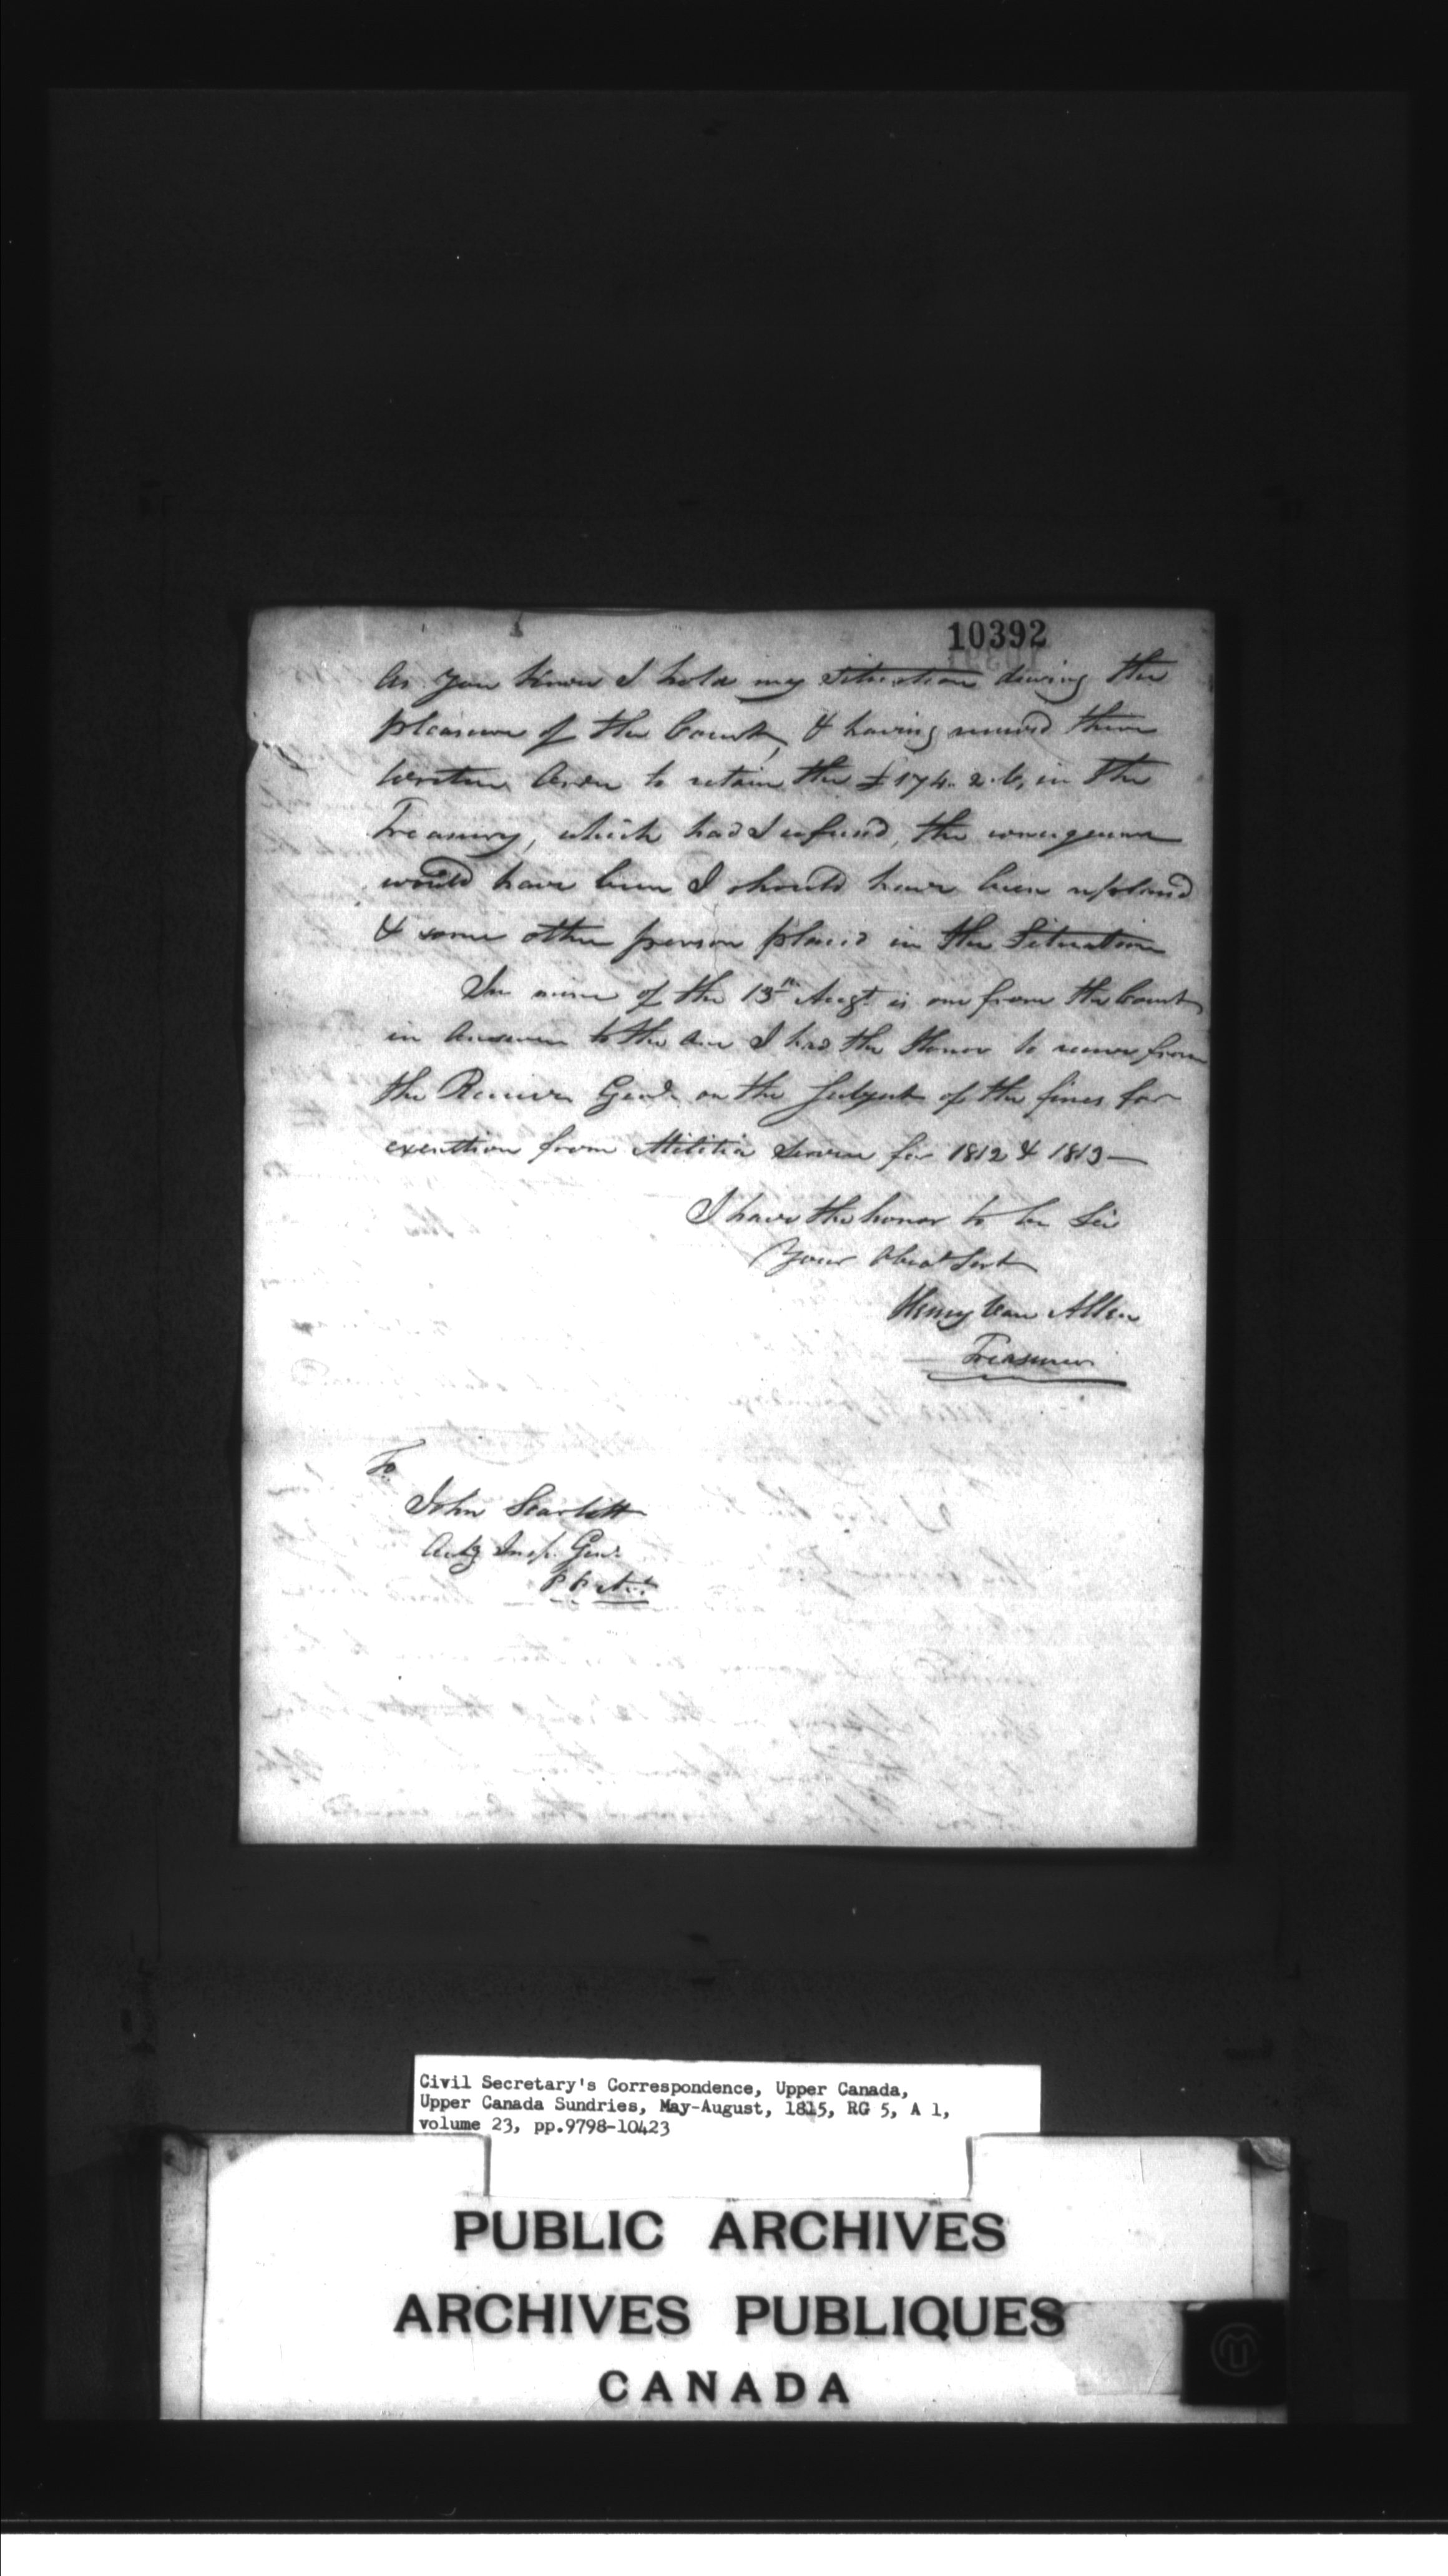 10392
As you know I hold my Situation during the
pleasure of the Court, & having received there
written Order to retain the £174.2.6, in the
Treasury, which had I refused, the consequence
would have been I should have been replaced
& some other person placed in the Situation
In mine of the 13th Augt is one from the Court
in Answer to the one I had the Honor to receive from
the Receiver Genl. on the Subject of the fines for
exemtion from Militia Service for 1812 & 1813—
I have the honor to be Sir
Your Obedt Servt
Henry Van Allen
Treasurer
To
John Scarlett
Actg Insp. Genl.
Civil Secretary's Correspondence, Upper Canada,
Upper Canada Sundries, May-August, 1815, RG 5, A 1,
volume 23, pp.9798-10423
PUBLIC ARCHIVES
ARCHIVES PUBLIQUES
CANADA